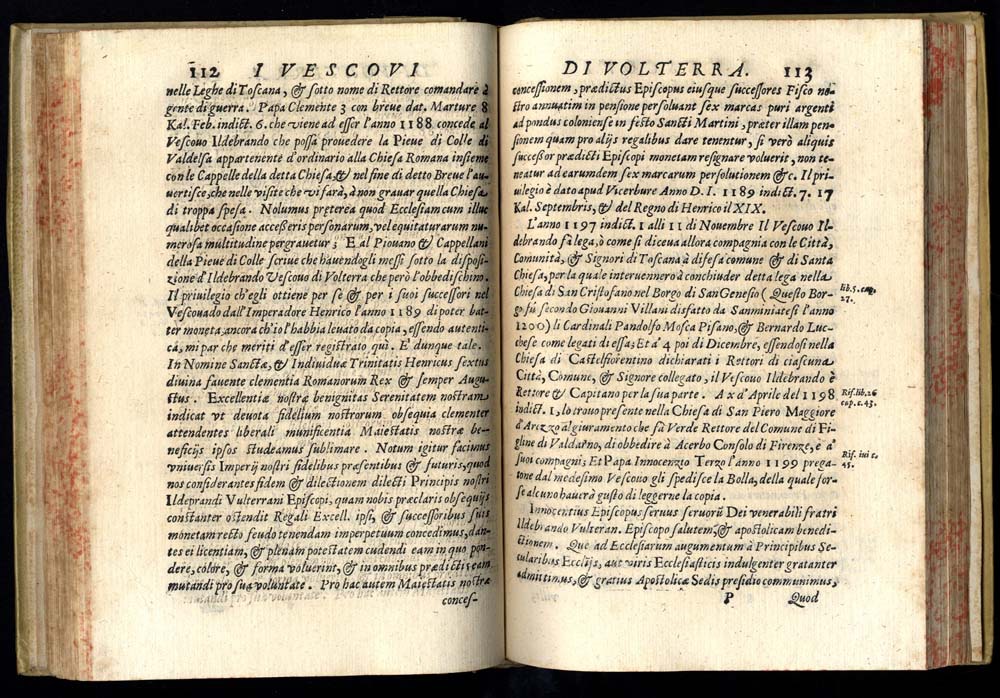 112 I VESCOVI
nelle Leghe di Toscana, & sotto nome di Rettore comandare à
gente di guerra. Papa Clemente 3 con breve dat. Marture 8
Kal. Feb. indict. 6. che viene ad esser l'anno 1188 concede al
Vescovo Ildebrando che possa provedere la Pieve di Colle di
Valdelsa appartenente d'ordinario alla Chiesa Romana insieme
con le Cappelle della detta Chiesa, & nel fine di detto Breve l'au-
vertisce, che nelle visite che vi farà, à non gravar quella Chiesa
di troppa spesa. Nolumus preterea quod Ecclesiam cum illuc
qualibet occasione accesseris personarum, vel equitaturarum nu-
merosa multitudine pergravetur; E al Piovano & Cappellani
della Pieve di Colle scrive che havendogli messi sotto la disposi-
zione d'Ildebrando Vescovo di Volterra che però l'obbedischino.
Il privilegio ch'egli ottiene per sè & per i suoi successori nel
Vescovado dall'Imperadore Henrico l'anno 1189 di poter bat-
ter moneta, ancora ch'io l'habbia levato da copia, essendo autenti-
ca, mi par che mèriti d'esser registrato quì. E' dunque tale.
In Nomine Sanctæ, & Individuæ Trinitatis Henricus sextus
divina favente clementia Romanorum Rex & semper Augu-
stus. Excellentiæ nostræ benignitas Serenitatem nostram
indicat vt devota fidelium nostrorum obsequia clementer
attendentes liberali munificentia Maiestatis nostræ be-
neficijs ipsos studeamus sublimare. Notum igitur facimus
vniversis Imperij nostri fidelibus præsentibus & futuris, quod
nos considerantes fidem & dilectionem dilecti Principis nostri
Ildeprandi Vulterrani Episcopi, quam nobis præclaris obsequijs
constanter ostendit Regali Excell. ipsi, & successoribus suis
monetam recto feudo tenendam imperpetuum concedimus, dan-
tes ei licentiam, & plenam potestatem cudendi eam in quo pon-
dere, colore, & forma voluerint, & in omnibus prædictis eam
mutandi pro sua voluntate. Pro hac autem Maiestatis nostræ
conces-
DI VOLTERRA. 113
concessionem, prædictus Episcopus eiusque successores Fisco no-
stro annuatim in pensione persolvant sex marcas puri argenti
ad pondus coloniense in festo Sancti Martini, præter illam pen-
sionem quam pro alijs regalibus dare tenentur, si verò aliquis
successor prædicti Episcopi monetam resignare voluerit, non te-
neatur ad earumdem sex marcarum persolutionem &c. Il pri-
vilegio è dato apud Vicerbure Anno D. I. 1189 indict. 7. 17
Kal. Septembris, & del Regno di Henrico il XIX.
L'anno 1197 indict. 1 alli 11 di Novembre Il Vescovo Il-
debrando fà lega, ò come si diceva allora compagnia con le Città,
Comunità, & Signori di Toscana à difesa comune & di Santa
Chiesa, per la quale intervennero à conchiuder detta lega nella
Chiesa di San Cristofano nel Borgo di San Genesio (Questo Bor-
go fù secondo Giovanni Villani disfatto da Sanminiatesi l'anno
1200) li Cardinali Pandolfo Mosca Pisano, & Bernardo Luc-
chese come legati di essa; Et à 4 poi di Dicembre, essendosi nella
Chiesa di Castelfiorentino dichiarati i Rettori di ciascuna
Città, Comune, & Signore collegato, il Vescovo Ildebrando è
Rettore & Capitano per la sua parte. A x d'Aprile del 1198
indict. 1, lo trovo presente nella Chiesa di San Piero Maggiore
d'Arezzo al giuramento che fà Verde Rettore del Comune di Fi-
gline di Valdarno, di obbedire à Acerbo Consolo di Firenze, e à
suoi compagni; Et Papa Innocenzio Terzo l'anno 1199 prega-
tone dal medesimo Vescovo gli spedisce la Bolla, della quale for-
se alcuno haverà gusto di leggerne la copia.
Innocentius Episcopus servus servorū Dei venerabili fratri
Ildebrando Vulteran. Episcopo salutem, & apostolicam benedi-
ctionem. Quæ ad Ecclesiarum augumentum à Principibus Se-
cularibus Ecclijs, aut viris Ecclesiasticis indulgenter gratanter
admittimus, & gratius Apostolicæ Sedis presidio communimus,
P Quod
lib. 5. cap.
27.
Rif. lib. 26
cap. c. 43.
Rif. ivi c.
45.